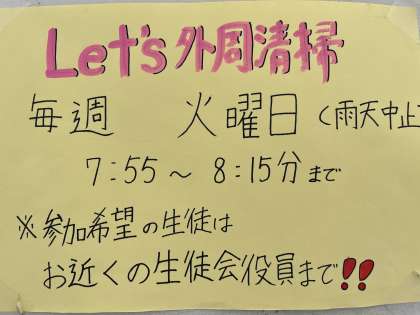 Let's外周清掃
毎週 火曜日 (雨天中止
7:55～8:15分まで
※参加希望の生徒は
お近くの生徒会役員まで!!